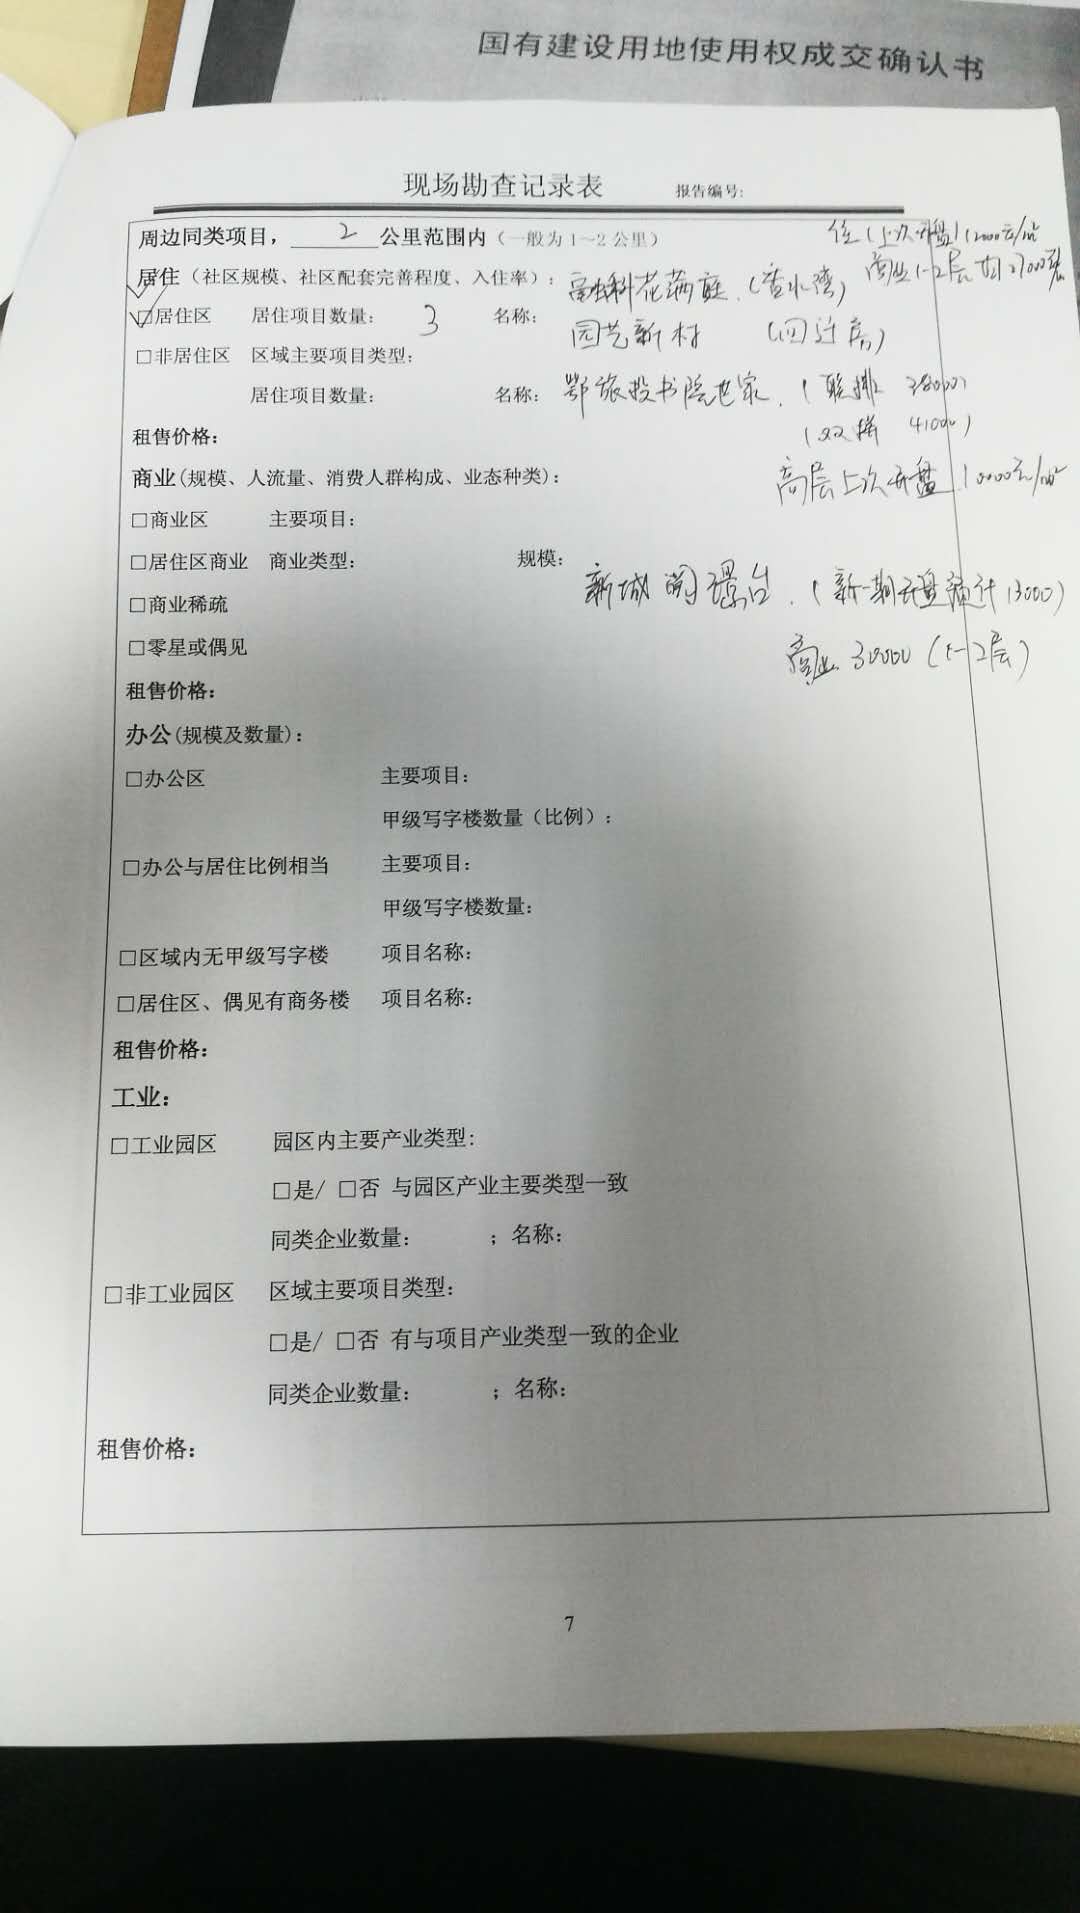 国有建设用地使用权成交确认书
现场勘查记录表 报告编号:
周边同类项目，2公里范围内（一般为1~2公里）
住（上次开盘）12000元/㎡
居住（社区规模、社区配套完善程度、入住率）：
花满庭（香水湾） 商业1-2层均27000元
☑居住区 居住项目数量： 3 名称：
园艺新村 （回迁房）
□非居住区 区域主要项目类型：
居住项目数量： 名称： 鄂旅投书院世家．（联排 38000）
（双拼 41000）
租售价格：
商业(规模、人流量、消费人群构成、业态种类)：
高层上次开盘 10000元/㎡
□商业区 主要项目：
□居住区商业 商业类型： 规模：
新城阅璟台．（新一期开盘预计13000）
□商业稀疏
□零星或偶见
商业 30000（1-2层）
租售价格：
办公(规模及数量)：
□办公区 主要项目：
甲级写字楼数量（比例）：
□办公与居住比例相当 主要项目：
甲级写字楼数量：
□区域内无甲级写字楼 项目名称：
□居住区、偶见有商务楼 项目名称：
租售价格：
工业：
□工业园区 园区内主要产业类型：
□是/ □否 与园区产业主要类型一致
同类企业数量： ；名称：
□非工业园区 区域主要项目类型：
□是/ □否 有与项目产业类型一致的企业
同类企业数量： ；名称：
租售价格：
7